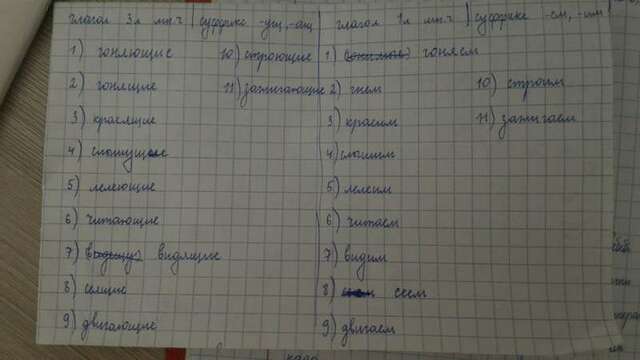 глагол 3 л мн.ч | суффикс -ущ, -ащ | глагол 1 л мн.ч | суффикс -ем, -им
1) гоняющие 10) строющие 1) гоняем
2) гонящие 11) зажигающие 2) гнем 10) строим
3) красящие 3) красим 11) зажигаем
4) слышущие 4) слышим
5) лелеющие 5) лелеим
6) читающие 6) читаем
7) видящие 7) видим
8) сеящие 8) сеем
9) двигающие 9) двигаем